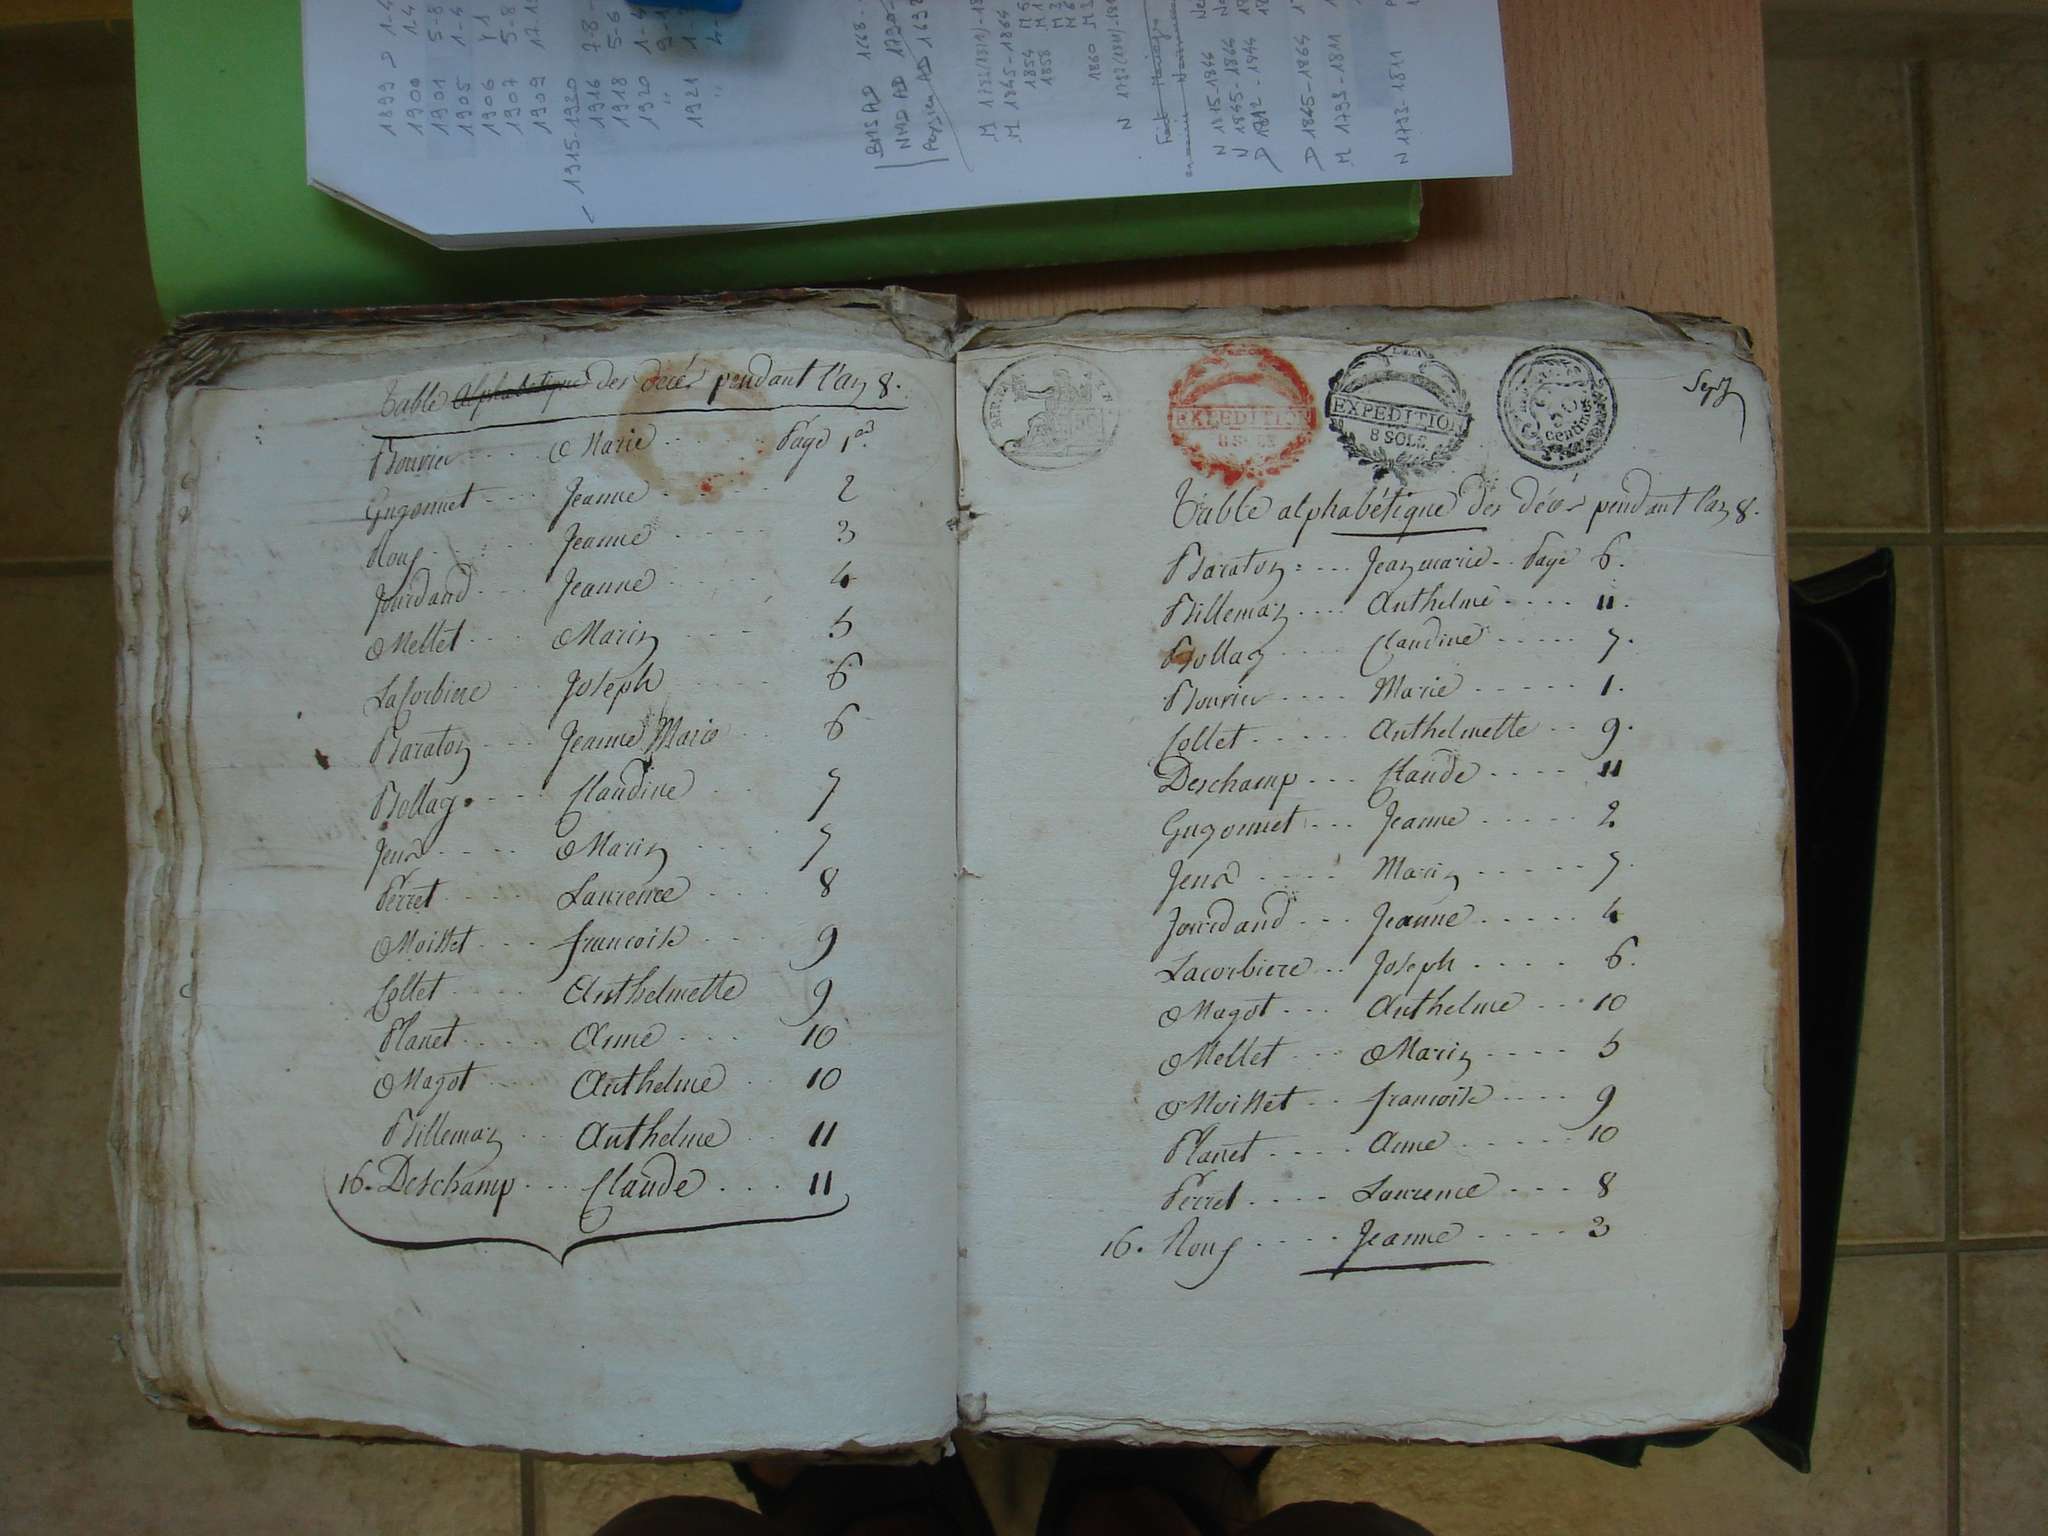 1899 D 1-4
1900 1-4
1901 5-8
1905 1-4
1906
1907 5-8
1909
1915-1920
1916 7-8
1918 5-6
1920 1-4
1921
BMS AD 1668
NMD AD 1790
AD 1692
M 1865-1864
1854
1858
1860
N 1815-1844
N 1845-1864
D 1865-1864
M 1793-1811
N 1793-1811
Table Alphabétique des décès pendant l'an 8.
Bouvier Marie Page 1
Gugonnet Jeanne 2
Roux Jeanne 3
Jourdand Jeanne 4
Mellet Marin 5
LaCorbiere Joseph 6
Baraton Jeanne Marie 6
Bollag Claudine 7
Marin 7
Perret Laurence 8
Moisset francoise 9
Collet Anthelmette 9
Planet Anne 10
Magot Anthelme 10
Billemaz Anthelme 11
16. Deschamp Claude 11
REP. FRA.
EXPEDITION
8 SOLS
EXPEDITION
8 SOLS
50
centimes
Table alphabétique des décès pendant l'an 8.
Baraton Jeanmarie Page 6.
Billemaz Anthelme 11.
Bollag Claudine 7.
Bouvier Marie 1.
Collet Anthelmette 9.
Deschamp Claude 11
Gugonnet Jeanne 2
Marin 7.
Jourdand Jeanne 4
Lacorbiere Joseph 6.
Magot Anthelme 10
Mellet Marin 5
Moisset francoise 9
Planet Anne 10
Perret Laurence 8
16. Roux Jeanne 3